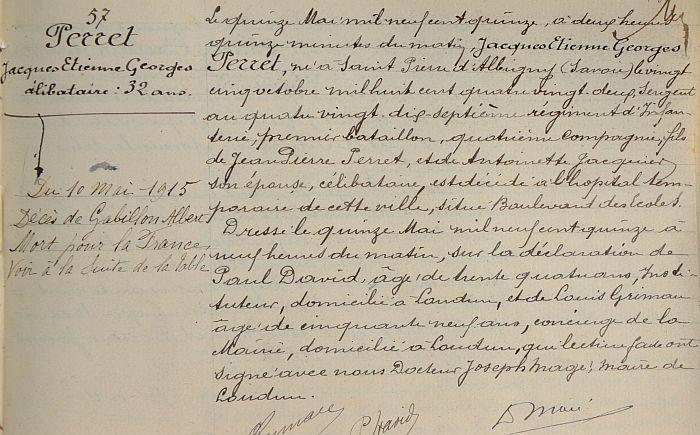 57
Perret
Jacques Etienne Georges
célibataire : 32 ans.
Du 10 Mai 1915
Décès de Gabillon Albert
Mort pour la France
Voir à la suite de la Table
Le quinze Mai mil neuf cent quinze, à deux heures
quinze minutes du matin, Jacques Etienne Georges
Perret, né à Saint Pierre d'Albigny (Savoie) le vingt
cinq octobre mil huit cent quatre vingt deux, Sergent
au quatre vingt dix-septième régiment d'Infan-
terie, premier bataillon, quatrième compagnie, fils
de Jean Pierre Perret, et de Antoinette Jacquier
son épouse, célibataire, est décédé à l'hopital tem-
poraire de cette ville, situé Boulevard des Ecoles.
Dressé le quinze Mai mil neuf cent quinze à
neuf heures du matin, sur la déclaration de
Paul David, âgé de trente quatre ans, Insti-
tuteur, domicilié à Loudun, et de Louis Grimau
âgé de cinquante neuf ans, concierge de la
Mairie, domicilié à Loudun, qui lecture faite ont
signé avec nous Docteur Joseph Magé, Maire de
Loudun.
P. David